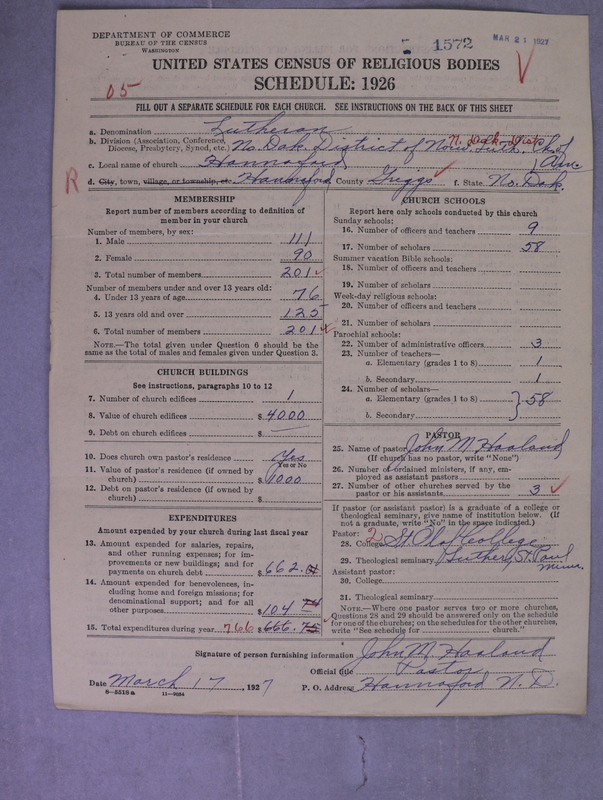 DEPARTMENT OF COMMERCE
BUREAU OF THE CENSUS
WASHINGTON
1572
MAR 21 1927
UNITED STATES CENSUS OF RELIGIOUS BODIES
SCHEDULE: 1926
05
FILL OUT A SEPARATE SCHEDULE FOR EACH CHURCH. SEE INSTRUCTIONS ON THE BACK OF THIS SHEET
a. Denomination Lutheran
b. Division (Association, Conference, Diocese, Presbytery, Synod, etc.) No. Dak. District of Norw. Luth. Ch. of Am.
N. Dak. Dist.
c. Local name of church Hannaford
R
d. City, town, village, or township, etc. Hannaford County Griggs f. State No. Dak.
MEMBERSHIP
Report number of members according to definition of member in your church
Number of members, by sex:
1. Male 111
2. Female 90
3. Total number of members 201
Number of members under and over 13 years old:
4. Under 13 years of age 76
5. 13 years old and over 125
6. Total number of members 201
NOTE.—The total given under Question 6 should be the same as the total of males and females given under Question 3.
CHURCH BUILDINGS
See instructions, paragraphs 10 to 12
7. Number of church edifices 1
8. Value of church edifices $4000
9. Debt on church edifices $
10. Does church own pastor's residence Yes
Yes or No
11. Value of pastor's residence (if owned by church) $1000
12. Debt on pastor's residence (if owned by church) $
EXPENDITURES
Amount expended by your church during last fiscal year
13. Amount expended for salaries, repairs, and other running expenses; for improvements or new buildings; and for payments on church debt $662.
14. Amount expended for benevolences, including home and foreign missions; for denominational support; and for all other purposes $104
15. Total expenditures during year 766 $666.75
CHURCH SCHOOLS
Report here only schools conducted by this church
Sunday schools:
16. Number of officers and teachers 9
17. Number of scholars 58
Summer vacation Bible schools:
18. Number of officers and teachers
19. Number of scholars
Week-day religious schools:
20. Number of officers and teachers
21. Number of scholars
Parochial schools:
22. Number of administrative officers 3
23. Number of teachers—
a. Elementary (grades 1 to 8) 1
b. Secondary 1
24. Number of scholars—
a. Elementary (grades 1 to 8) } 58
b. Secondary
PASTOR
25. Name of pastor John M Haaland
(If church has no pastor, write "None")
26. Number of ordained ministers, if any, employed as assistant pastors
27. Number of other churches served by the pastor or his assistants 3
If pastor (or assistant pastor) is a graduate of a college or theological seminary, give name of institution below. (If not a graduate, write "No" in the space indicated.)
Pastor: 2
28. College St. Olaf College
29. Theological seminary Luther, St. Paul Minn.
Assistant pastor:
30. College
31. Theological seminary
NOTE.—Where one pastor serves two or more churches, Questions 28 and 29 should be answered only on the schedule for one of the churches; on the schedules for the other churches, write "See schedule for church."
Signature of person furnishing information John M. Haaland
Official title Pastor
Date March 17, 1927 P. O. Address Hannaford N. D.
8—5518a 11—9034